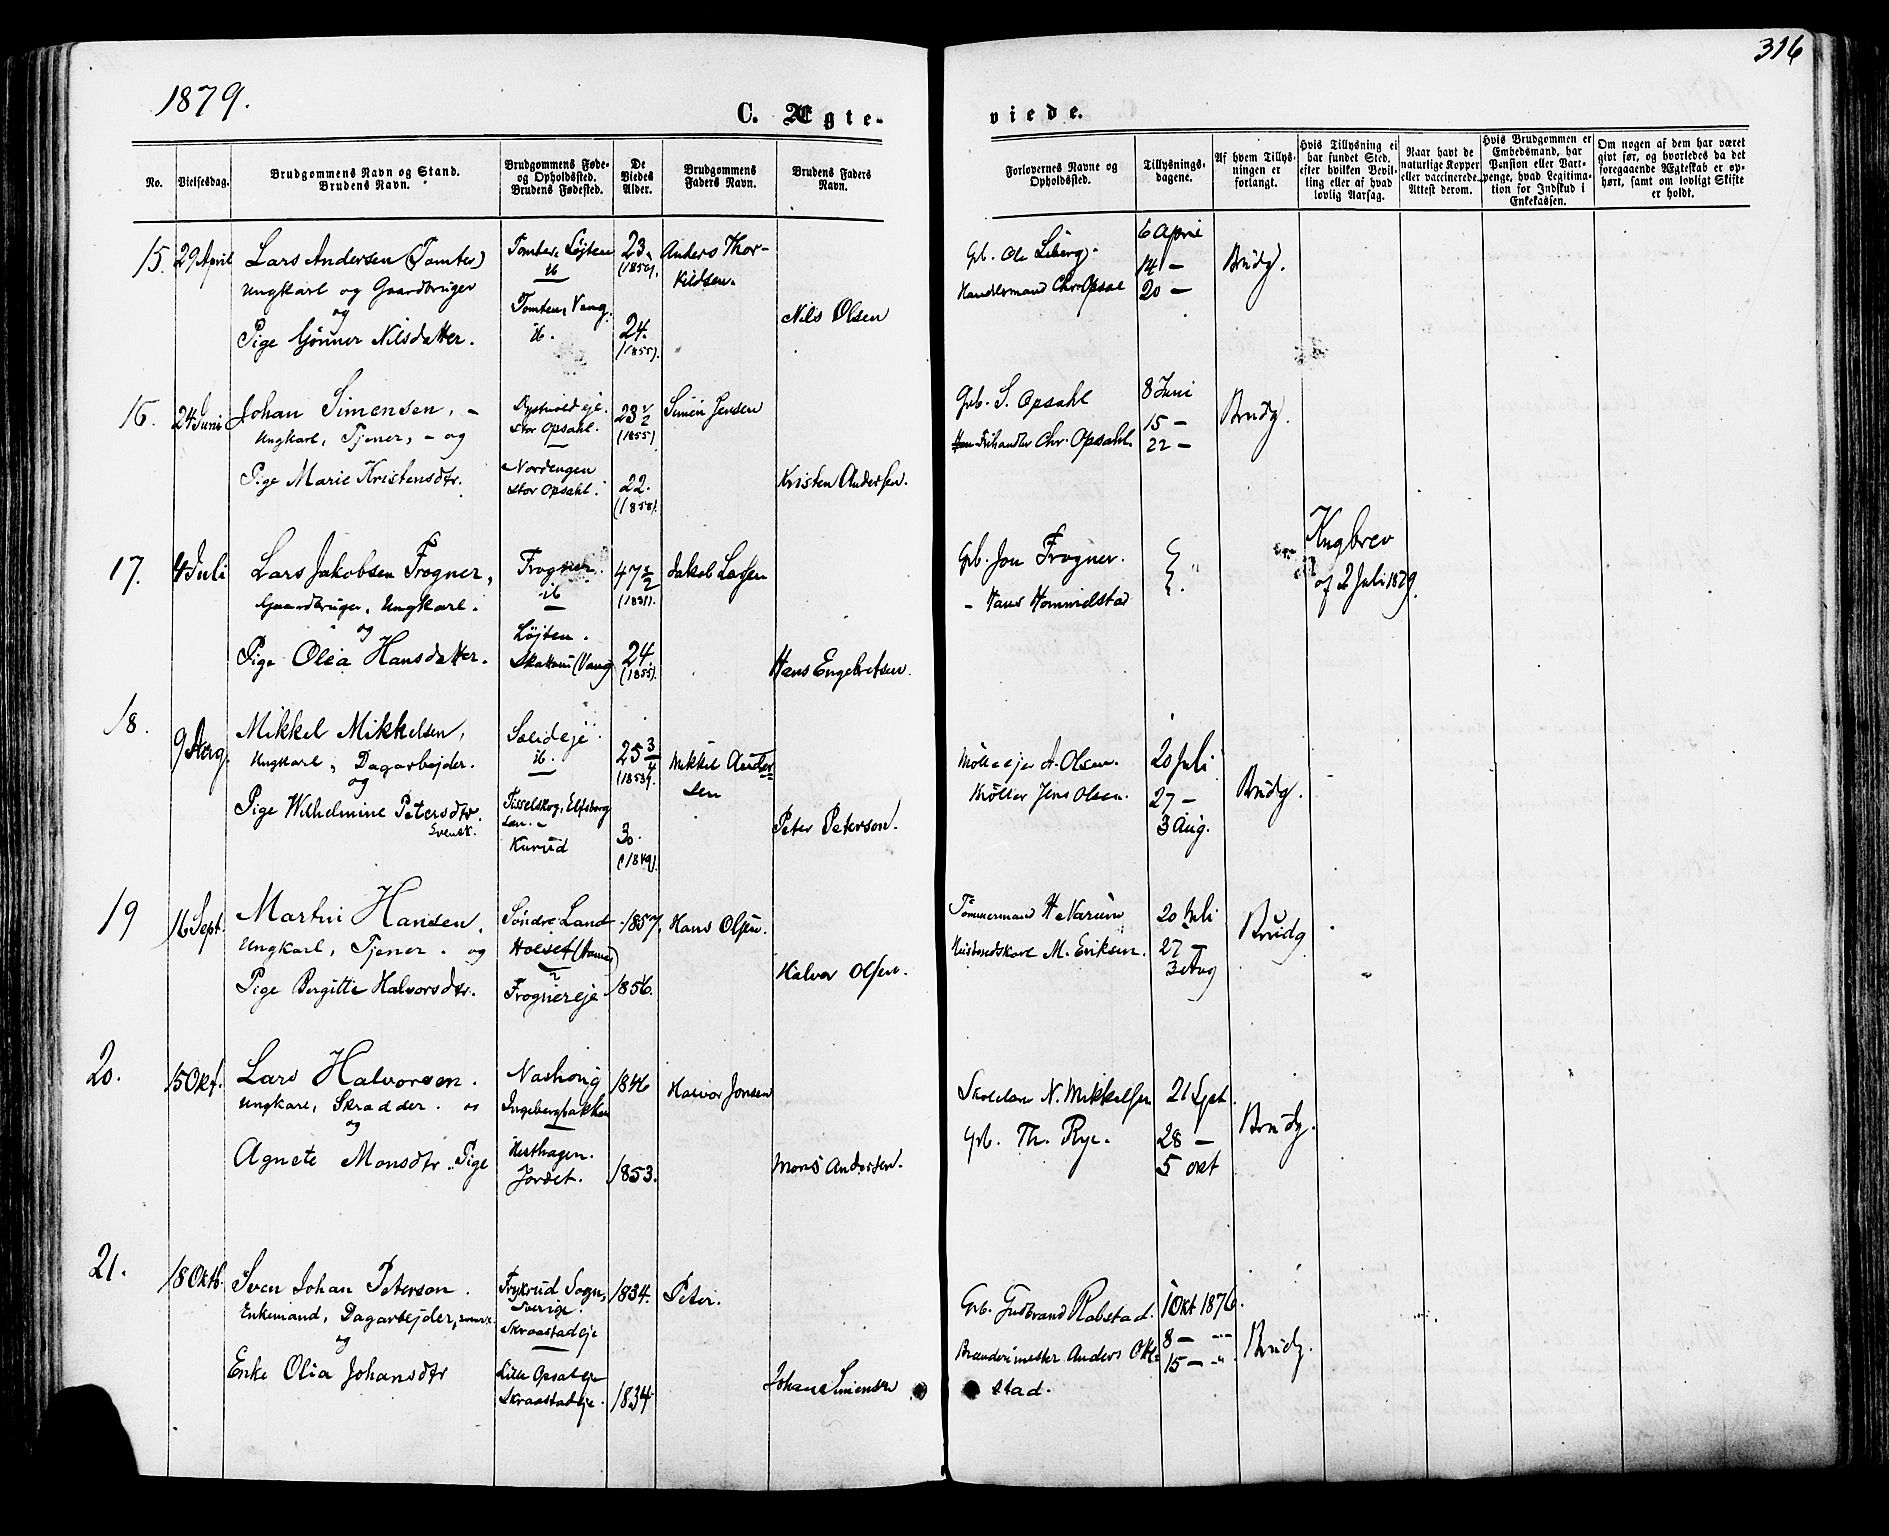 316
1879.
C. Ægte-
viede.
No.
Vielsesdag.
Brudgommens Navn og Stand.
Brudens Navn.
Brudgommens Føde-
og Opholdssted.
Brudens Fødested.
De
Viedes
Alder.
Brudgommens
Faders Navn.
Brudens Faders
Navn.
Forlovernes Navne og
Opholdssted.
Tillysnings-
dagene.
Af hvem Tillys-
ningen er
forlangt.
Hvis Tillysning ei
har fundet Sted,
efter hvilken Bevil-
ling eller af hvad
lovlig Aarsag.
Naar havt de
naturlige Kopper
eller vaccinerede.
Attest derom.
Hvis Brudgommen er
Embedsmand, har
Pension eller Vart-
penge, hvad Legitima-
tion for Indskud i
Enkekassen.
Om nogen af dem har været
givt før, og hvorledes da det
foregaaende Ægteskab er op-
hørt, samt om lovligt Skifte
er holdt.
15. 29 April
Lars Andersen (Tomter)
Ungkarl og Gaardbruger
og
Pige Gønner Nilsdatter.
Tomter, Løjten
ib
Tomten, Vang.
ib.
23.
24.
(1855).
Anders Thor-
kildsen.
Nils Olsen
Gb. Ole Liberg.
Handelsmand Chr. Opsal
6 April
14 —
20 —
Brudg.
16. 24 Juni
Johan Simensen, -
Ungkarl, Tjener, - og
Pige Marie Kristensdtr.
Stor Opsahl.
Nordengen
Stor Opsahl.
23 ½
(1855)
22.
(1858).
Simen Jensen
Kristen Andersen.
Grb. S. Opsahl
Frihandler Chr. Opsahl.
8 Juni
15 —
22 —
Brudg.
17. 4 Juli
Lars Jakobsen Frogner,
Gaardbruger, Ungkarl.
og
Pige Olea Hansdatter.
Frogner.
ib
Løjten.
(Vang)
(1831).
24.
(1855).
Jakob Larsen
Hans Engebretsen.
Grb. Jon Frogner.
- Hans Hommelstad
Kngbrev
af 2 Juli 1879.
18.
9 Aug.
Mikkel Mikkelsen,
Ungkarl, Dagarbejder.
og
Pige Wilhelmine Petersdtr.
Svensk.
Sælideje.
ib.
Tisselskog, Elfsborg
Län. -
Kurud
25 3/4
30.
(1849).
Mikkel Ander
sen
Peter Peterson.
Mölleejer A. Olsen.
Møller Jens Olsen.
20 Juli
27 —
3 Aug.
Brudg.
19
16 Sept.
Martin Hansen.
Ungkarl, Tjener. og
Pige Bergitte Halvorsdtr.
Søndre Land
Frognereje
1857.
1856.
Hans Olsen.
Halvor Olsen.
Tömmermand H. Narum
M. Eriksen.
20 Juli
27 —
3 Aug
Brudg
20.
15 Okt.
Lars Halvorsen.
Ungkarl, Skrædder.
og
Agnete Monsdtr. Pige
Nashoug
Ingebergbakken
Hesthagen.
Jordet.
1846
1853.
Halvor Jonsen
Mons Andersen.
Skolelær N. Mikkelsen
Grb. Th. Rye.
21 Sept.
28 —
5 Okt
Brudg.
21.
18 Oktb.
Sven Johan Peterson.
Enkemand, Dagarbejder, svensk.
og
Enke Olia Johansdtr
Frykerud Sogn,
Sverige.
Skraastadeje
Lille Opsaleje
Skraastadeje.
1834.
1834.
Peter.
Johan Simensen
Grb. Gudbrand Rabstad.
Brænderimester Anders Okl-
stad.
1 Okt 1876.
8 — "
15 — "
Brudg.